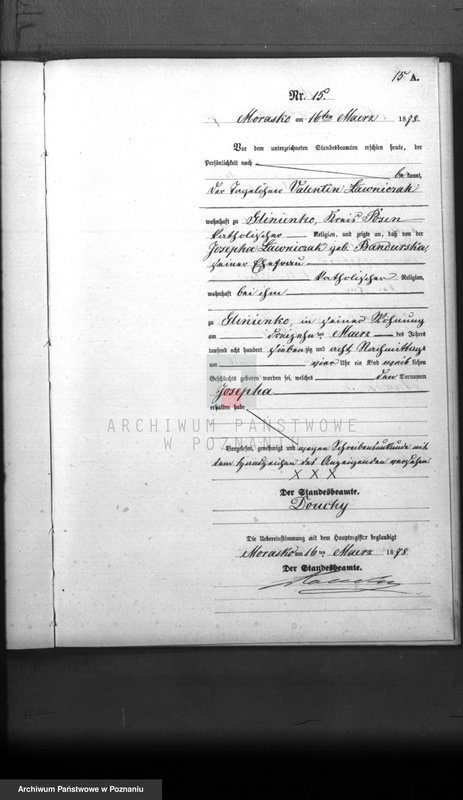 15 A.
Nr. 15.
Morasko am 16ten Maerz 1878.
Vor dem unterzeichneten Standesbeamten erschien heute, der
Persönlichkeit nach
bekannt,
der Tagelöhner Valentin Ławniczak
wohnhaft zu Glinienko, Kreis Posen
katholischer Religion, und zeigte an, daß von der
Josepha Ławniczak geb. Bandurska,
seiner Ehefrau
katholischer Religion,
wohnhaft bei ihm
zu Glinienko, in seiner Wohnung
am dreizehnten Maerz des Jahres
tausend acht hundert siebenzig und acht Nachmittags
um vier Uhr ein Kind weiblichen
Geschlechts geboren worden sei, welches den Vornamen
Josepha
erhalten habe
ARCHIWUM PAŃSTWOWE
W POZNANIU
Vorgelesen, genehmigt und wegen Schreibensunkunde mit
dem Handzeichen des Anzeigenden versehen
X X X
Der Standesbeamte.
Douchy
Die Uebereinstimmung mit dem Hauptregister beglaubigt
Morasko am 16ten Maerz 1878.
Der Standesbeamte.
Archiwum Państwowe w Poznaniu